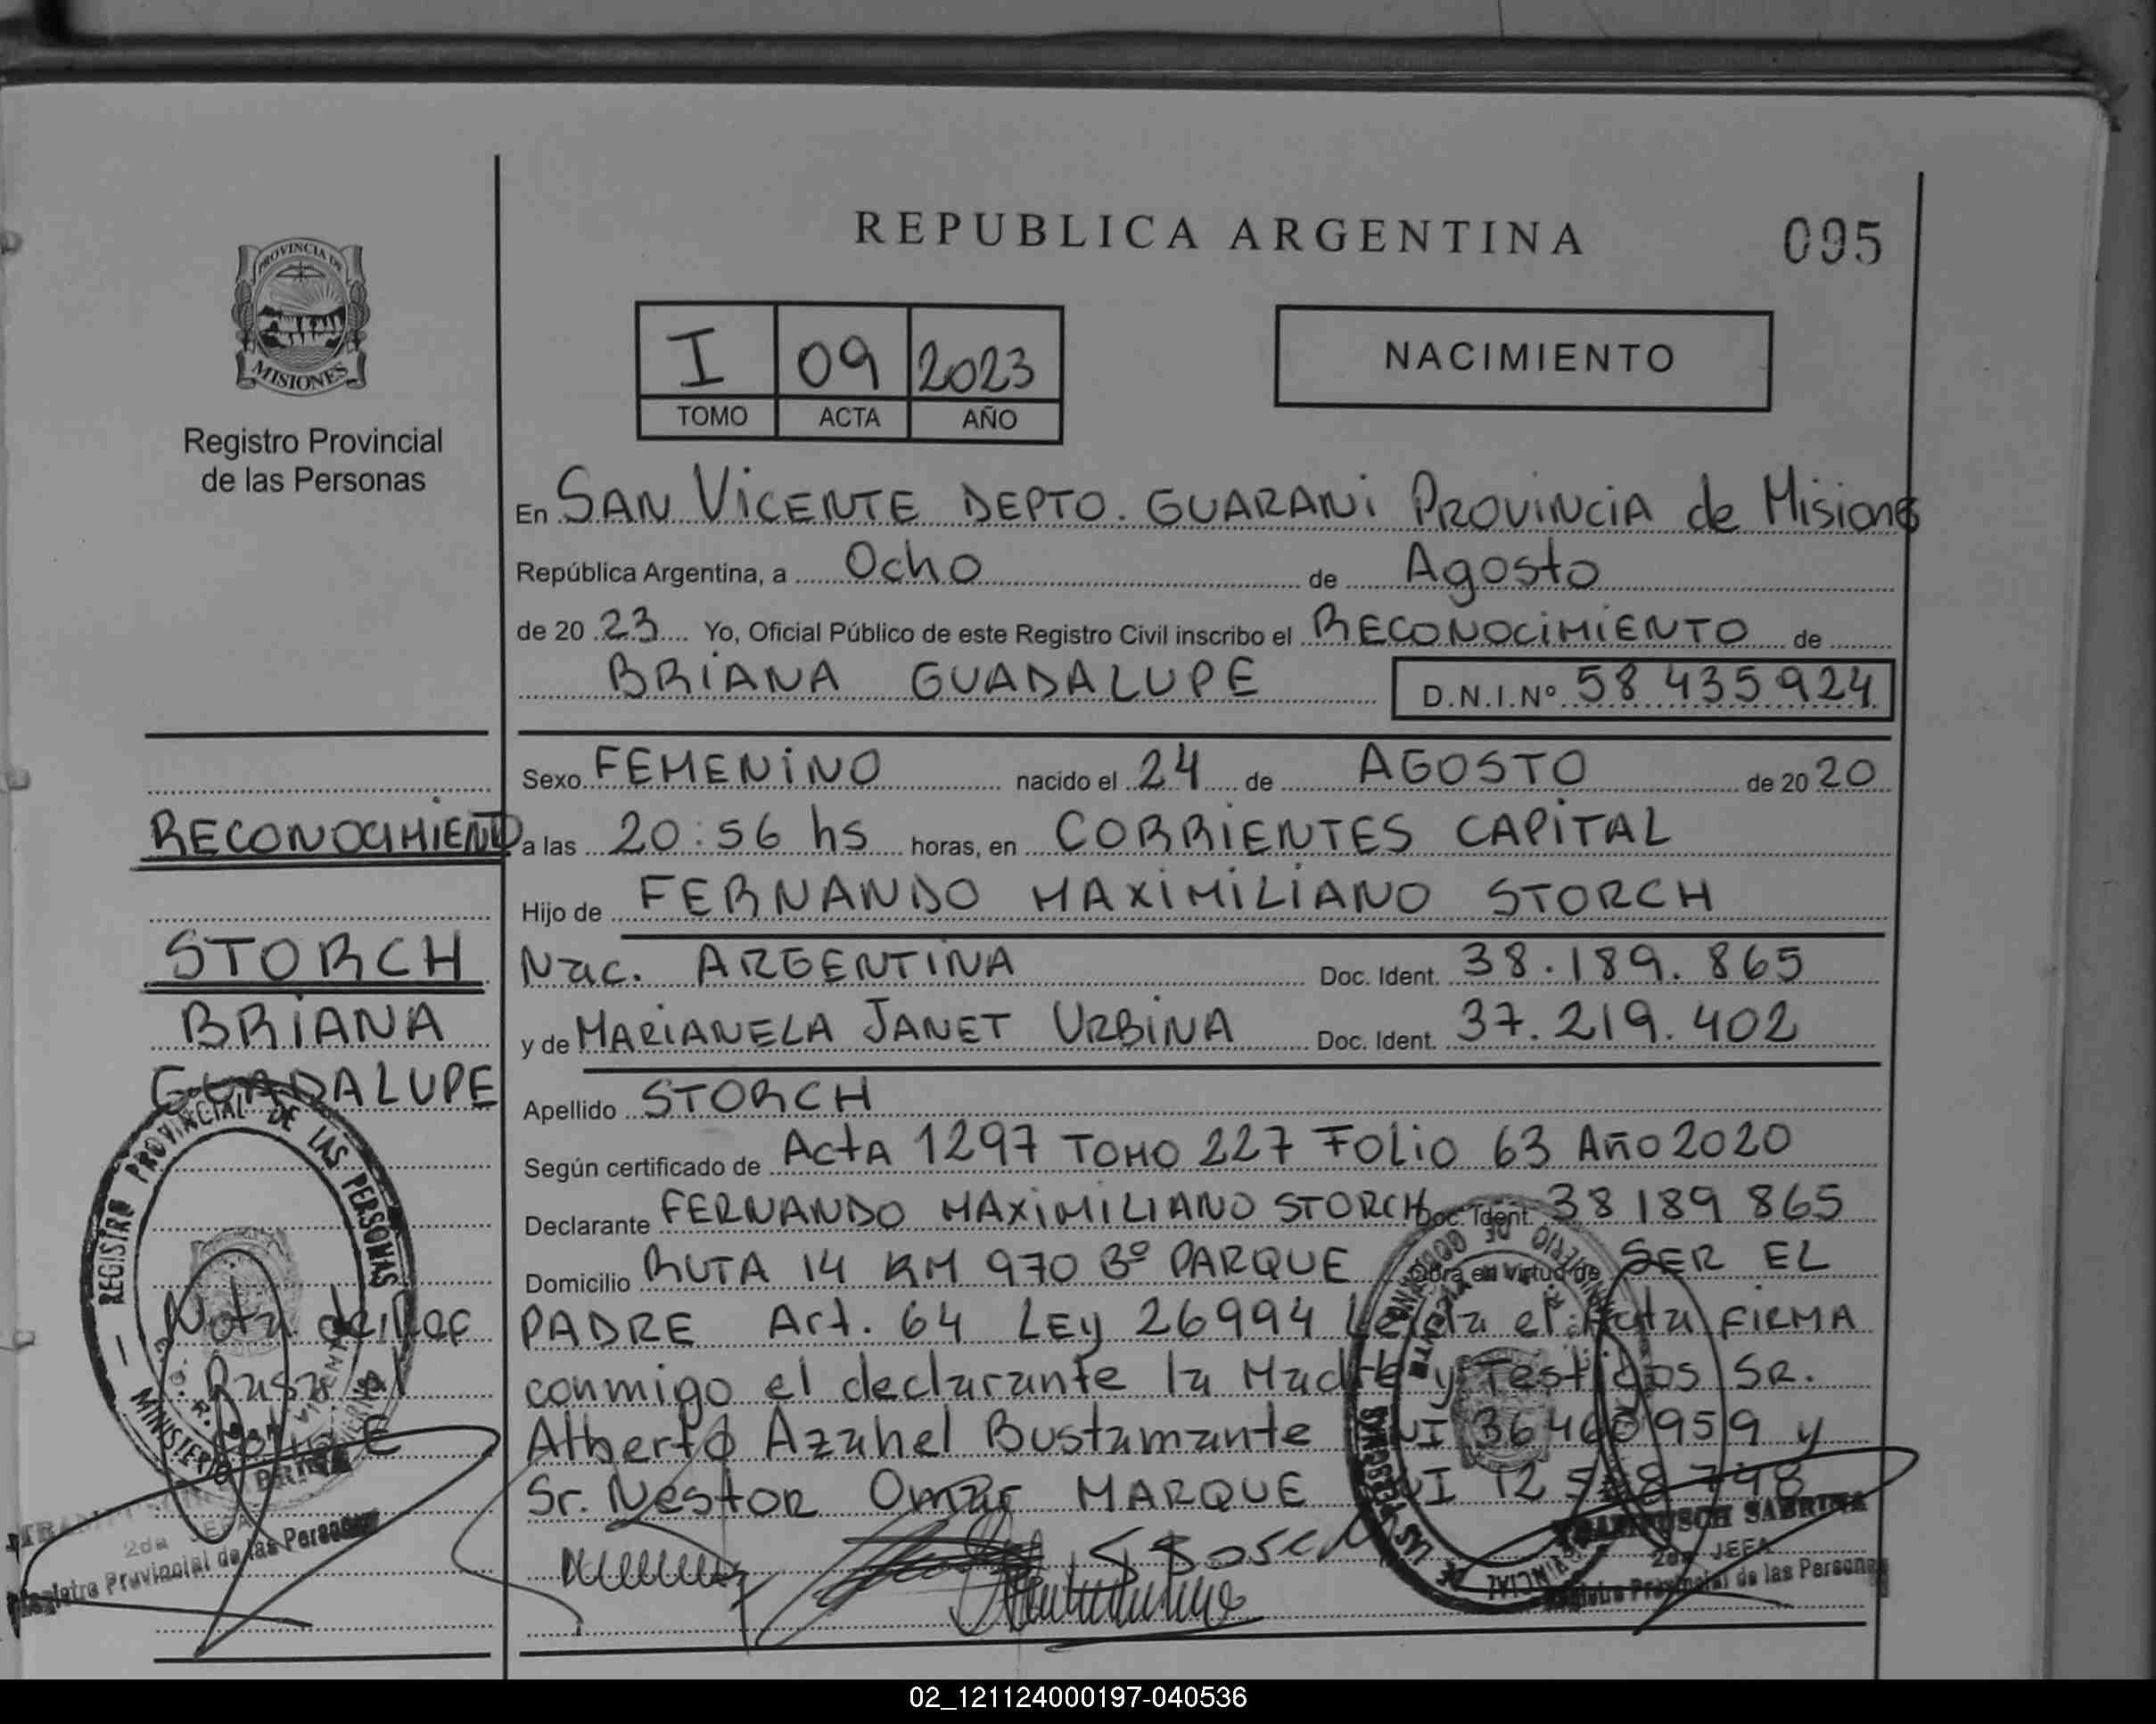 REPUBLICA ARGENTINA
095
PROVINCIA DE
MISIONES
Registro Provincial
de las Personas
I 09 2023
TOMO ACTA AÑO
NACIMIENTO
En SAN VICENTE DEPTO. GUARANI PROVINCIA de Misiones
República Argentina, a Ocho de Agosto
de 20 23 Yo, Oficial Público de este Registro Civil inscribo el RECONOCIMIENTO de
BRIANA GUADALUPE D.N.I.Nº 58 435 924
Sexo FEMENINO nacido el 24 de AGOSTO de 20 20
a las 20:56 hs horas, en CORRIENTES CAPITAL
Hijo de FERNANDO MAXIMILIANO STORCH
Nac. ARGENTINA Doc. Ident. 38.189.865
y de MARIANELA JANET URBINA Doc. Ident. 37.219.402
Apellido STORCH
Según certificado de Acta 1297 TOMO 227 FOLIO 63 Año 2020
Declarante FERNANDO MAXIMILIANO STORCH Doc. Ident. 38 189 865
Domicilio RUTA 14 KM 970 Bº PARQUE Obra en virtud de SER EL
PADRE Art. 64 Ley 26994 Leída el Acta FIRMA
conmigo el declarante la Madre y Testigos SR.
Alberto Azahel Bustamante 959 y
Sr. Nestor Omar MARQUE 12
RECONOCIMIENTO
STORCH
BRIANA
GUADALUPE
REGISTRO PROVINCIAL DE LAS PERSONAS
Nota de Ref
SABRINA
2da JEFA
Registro Provincial de las Personas
2da
Registro Provincial de las Personas
02_121124000197-040536